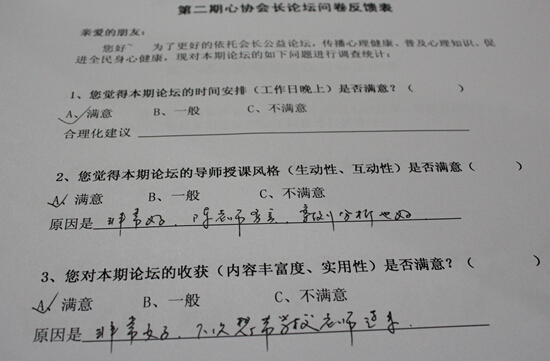 第二期心协会长论坛问卷反馈表
亲爱的朋友：
您好~ 为了更好的依托会长公益论坛，传播心理健康、普及心理知识、促
进全民身心健康，现对本期论坛的如下问题进行调查统计：
1、您觉得本期论坛的时间安排（工作日晚上）是否满意？（ ）
A、满意 B、一般 C、不满意
合理化建议
2、您觉得本期论坛的导师授课风格（生动性、互动性）是否满意（ ）
A、满意 B、一般 C、不满意
原因是 非常好，陈老师 ，案例分析也好
3、您对本期论坛的收获（内容丰富度、实用性）是否满意？（ ）
A、满意 B、一般 C、不满意
原因是 非常好，下次想带学校老师过来.